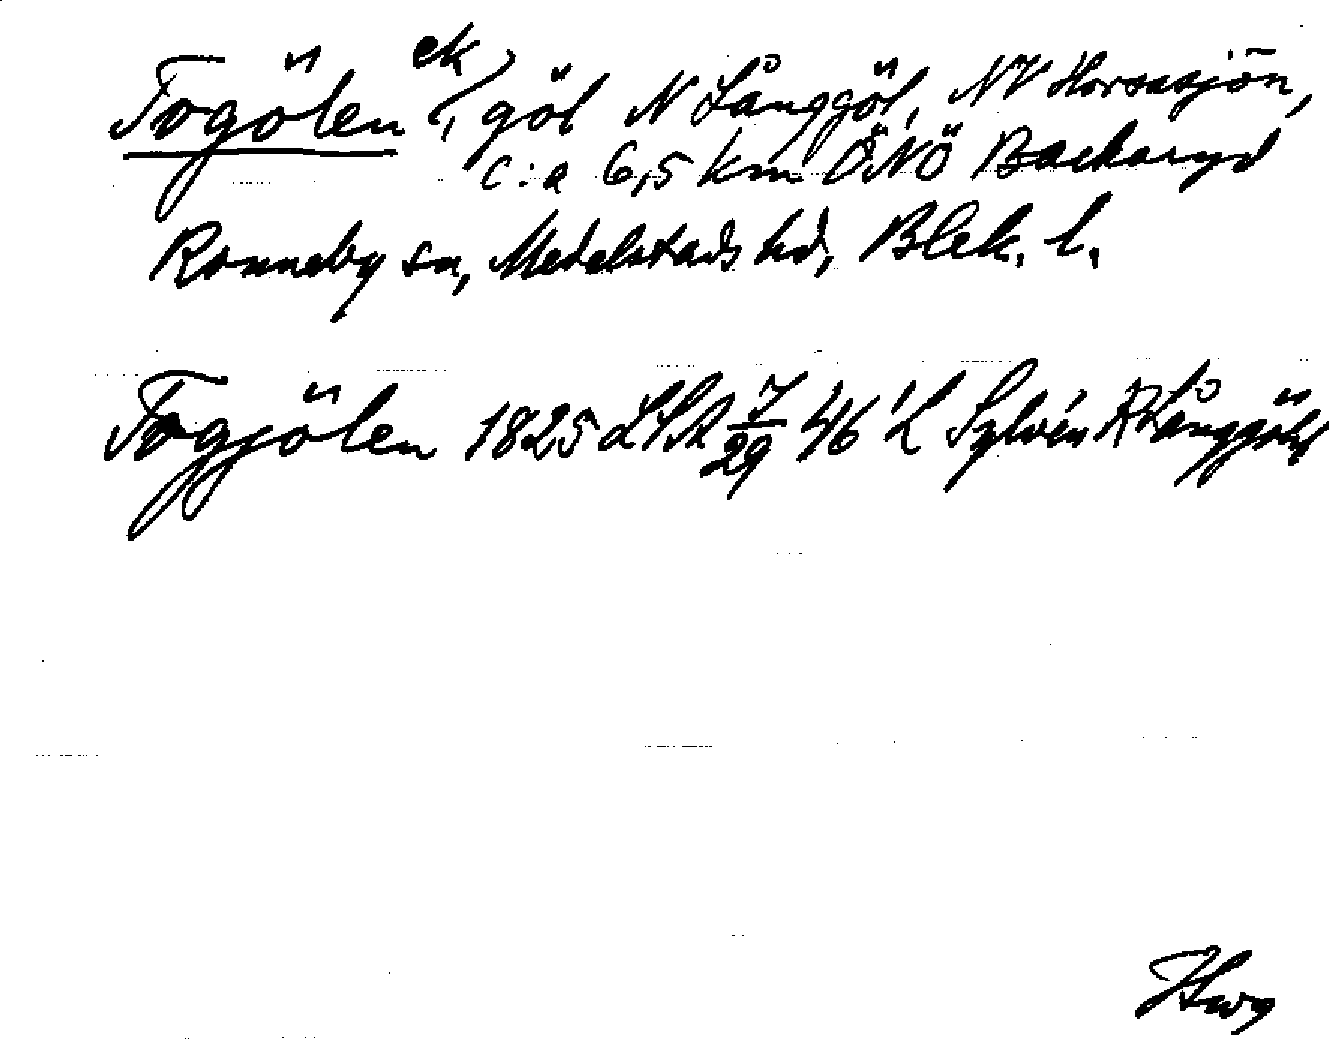 Togölen (ek), göl N Långgöl, NV Horsasjön,
c:a 6,5 km ÖNÖ Backaryd
Ronneby sn, Medelstads hd, Blek. l.
Togjölen 1825 LSA 7/29 46 L Sylvén Långgöl